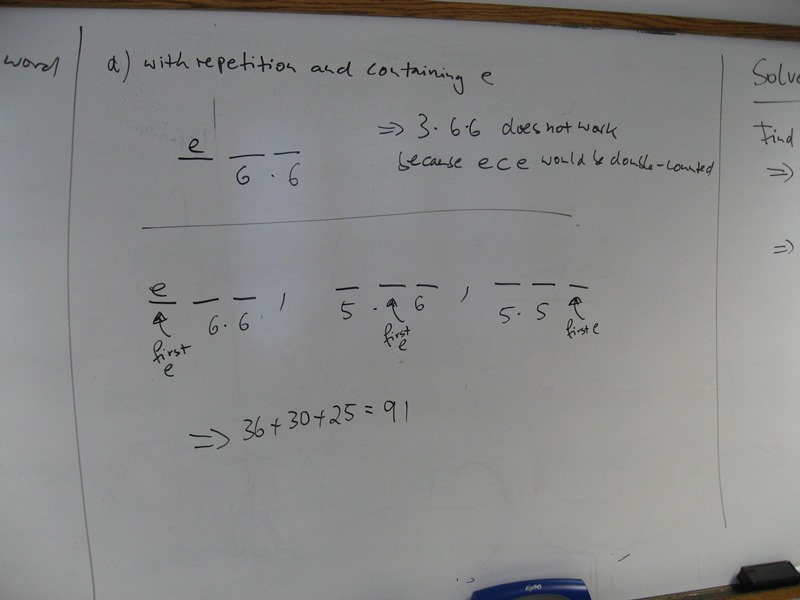 word
d) with repetition and containing e
e
6 . 6
=> 3 . 6 . 6 does not work
because ece would be double-counted
e , ,
6 . 6 5 . 6 5 . 5
first e
first e
first e
=> 36 + 30 + 25 = 91
Solve
Find
=>
=>
EXPO